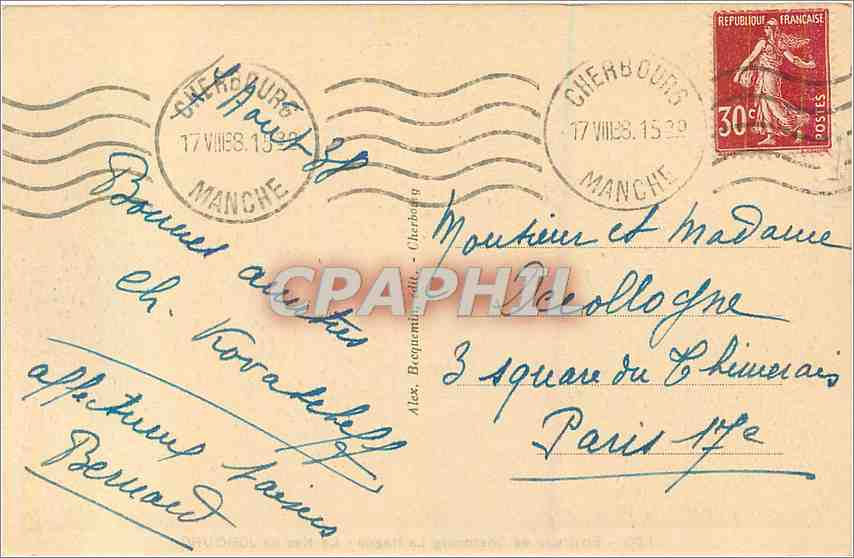 CHERBOURG
17 VIII 38. 15
MANCHE
CHERBOURG
17 VIII 38. 15
MANCHE
REPUBLIQUE FRANÇAISE
30c
POSTES
Août 38
Bonnes amitiés
Ch. Kovatcheff
affectueux baisers
Bernard
Alex. Becquemin, édit. - Cherbourg
CPARHIL
Monsieur et Madame
3 square du Thimerais
Paris 17e